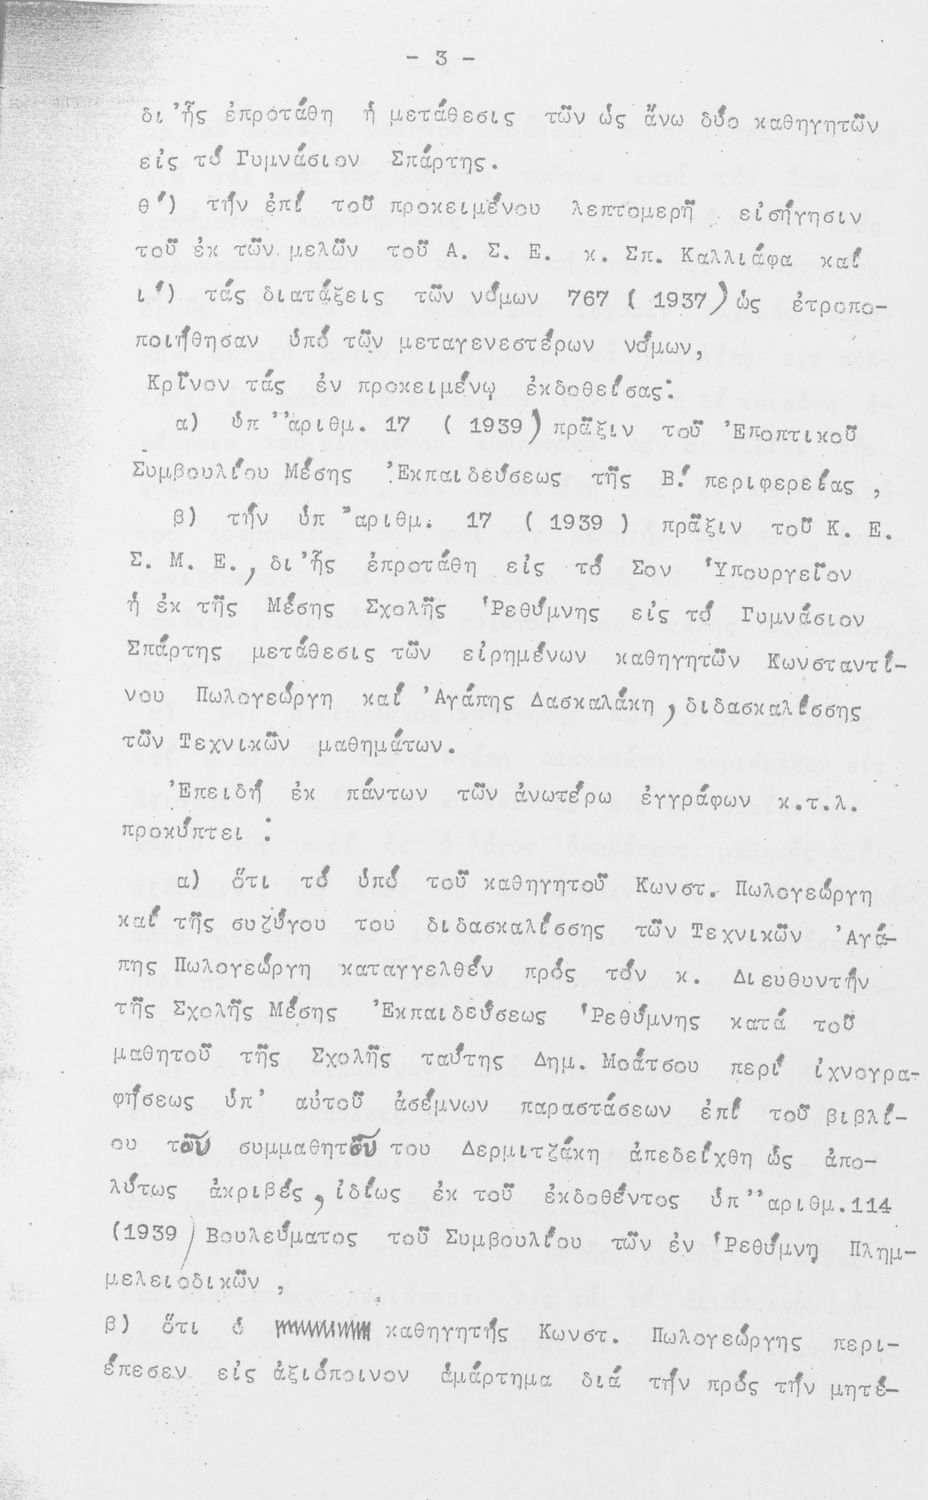 - 3 -
δι'ἧς ἐπροτάθη ἡ μετάθεσις τῶν ὡς ἄνω δύο καθηγητῶν
εἰς τό Γυμνάσιον Σπάρτης.
θ') τήν ἐπί τοῦ προκειμένου λεπτομερῆ εἰσήγησιν
τοῦ ἐκ τῶν μελῶν τοῦ Α. Σ. Ε. κ. Σπ. Καλλιάφα καί
ι') τάς διατάξεις τῶν νόμων 767 ( 1937) ὡς ἐτροπο-
ποιήθησαν ὑπό τῶν μεταγενεστέρων νόμων,
Κρῖνον τάς ἐν προκειμένῳ ἐκδοθείσας:
α) ὑπ''ἀριθμ. 17 ( 1939) πρᾶξιν τοῦ Ἐποπτικοῦ
Συμβουλίου Μέσης Ἐκπαιδεύσεως τῆς Β! περιφερείας ,
β) τήν ὑπ ἀριθμ. 17 ( 1939 ) πρᾶξιν τοῦ Κ. Ε.
Σ. Μ. Ε., δι'ἧς ἐπροτάθη εἰς τό Σον Ὑπουργεῖον
ἡ ἐκ τῆς Μέσης Σχολῆς Ῥεθύμνης εἰς τό Γυμνάσιον
Σπάρτης μετάθεσις τῶν εἰρημένων καθηγητῶν Κωνσταντί-
νου Πωλογεώργη καί Ἀγάπης Δασκαλάκη, διδασκαλίσσης
τῶν Τεχνικῶν μαθημάτων.
Ἐπειδή ἐκ πάντων τῶν ἀνωτέρω ἐγγράφων κ.τ.λ.
προκύπτει :
α) ὅτι τό ὑπό τοῦ καθηγητοῦ Κωνστ. Πωλογεώργη
καί τῆς συζύγου του διδασκαλίσσης τῶν Τεχνικῶν Ἀγά-
πης Πωλογεώργη καταγγελθέν πρός τόν κ. Διευθυντήν
τῆς Σχολῆς Μέσης Ἐκπαιδεύσεως Ῥεθύμνης κατά τοῦ
μαθητοῦ τῆς Σχολῆς ταύτης Δημ. Μοάτσου περί ἰχνογρα-
φήσεως ὑπ' αὐτοῦ ἀσέμνων παραστάσεων ἐπί τοῦ βιβλί-
ου τοῦ συμμαθητοῦ του Δερμιτζάκη ἀπεδείχθη ὡς ἀπο-
λύτως ἀκριβές, ἰδίως ἐκ τοῦ ἐκδοθέντος ὑπ''ἀριθμ.114
(1939) Βουλεύματος τοῦ Συμβουλίου τῶν ἐν Ῥεθύμνῃ Πλημ-
μελειοδικῶν ,
β) ὅτι ὁ καθηγητής Κωνστ. Πωλογεώργης περι-
έπεσεν εἰς ἀξιόποινον ἁμάρτημα διά τήν πρός τήν μητέ-